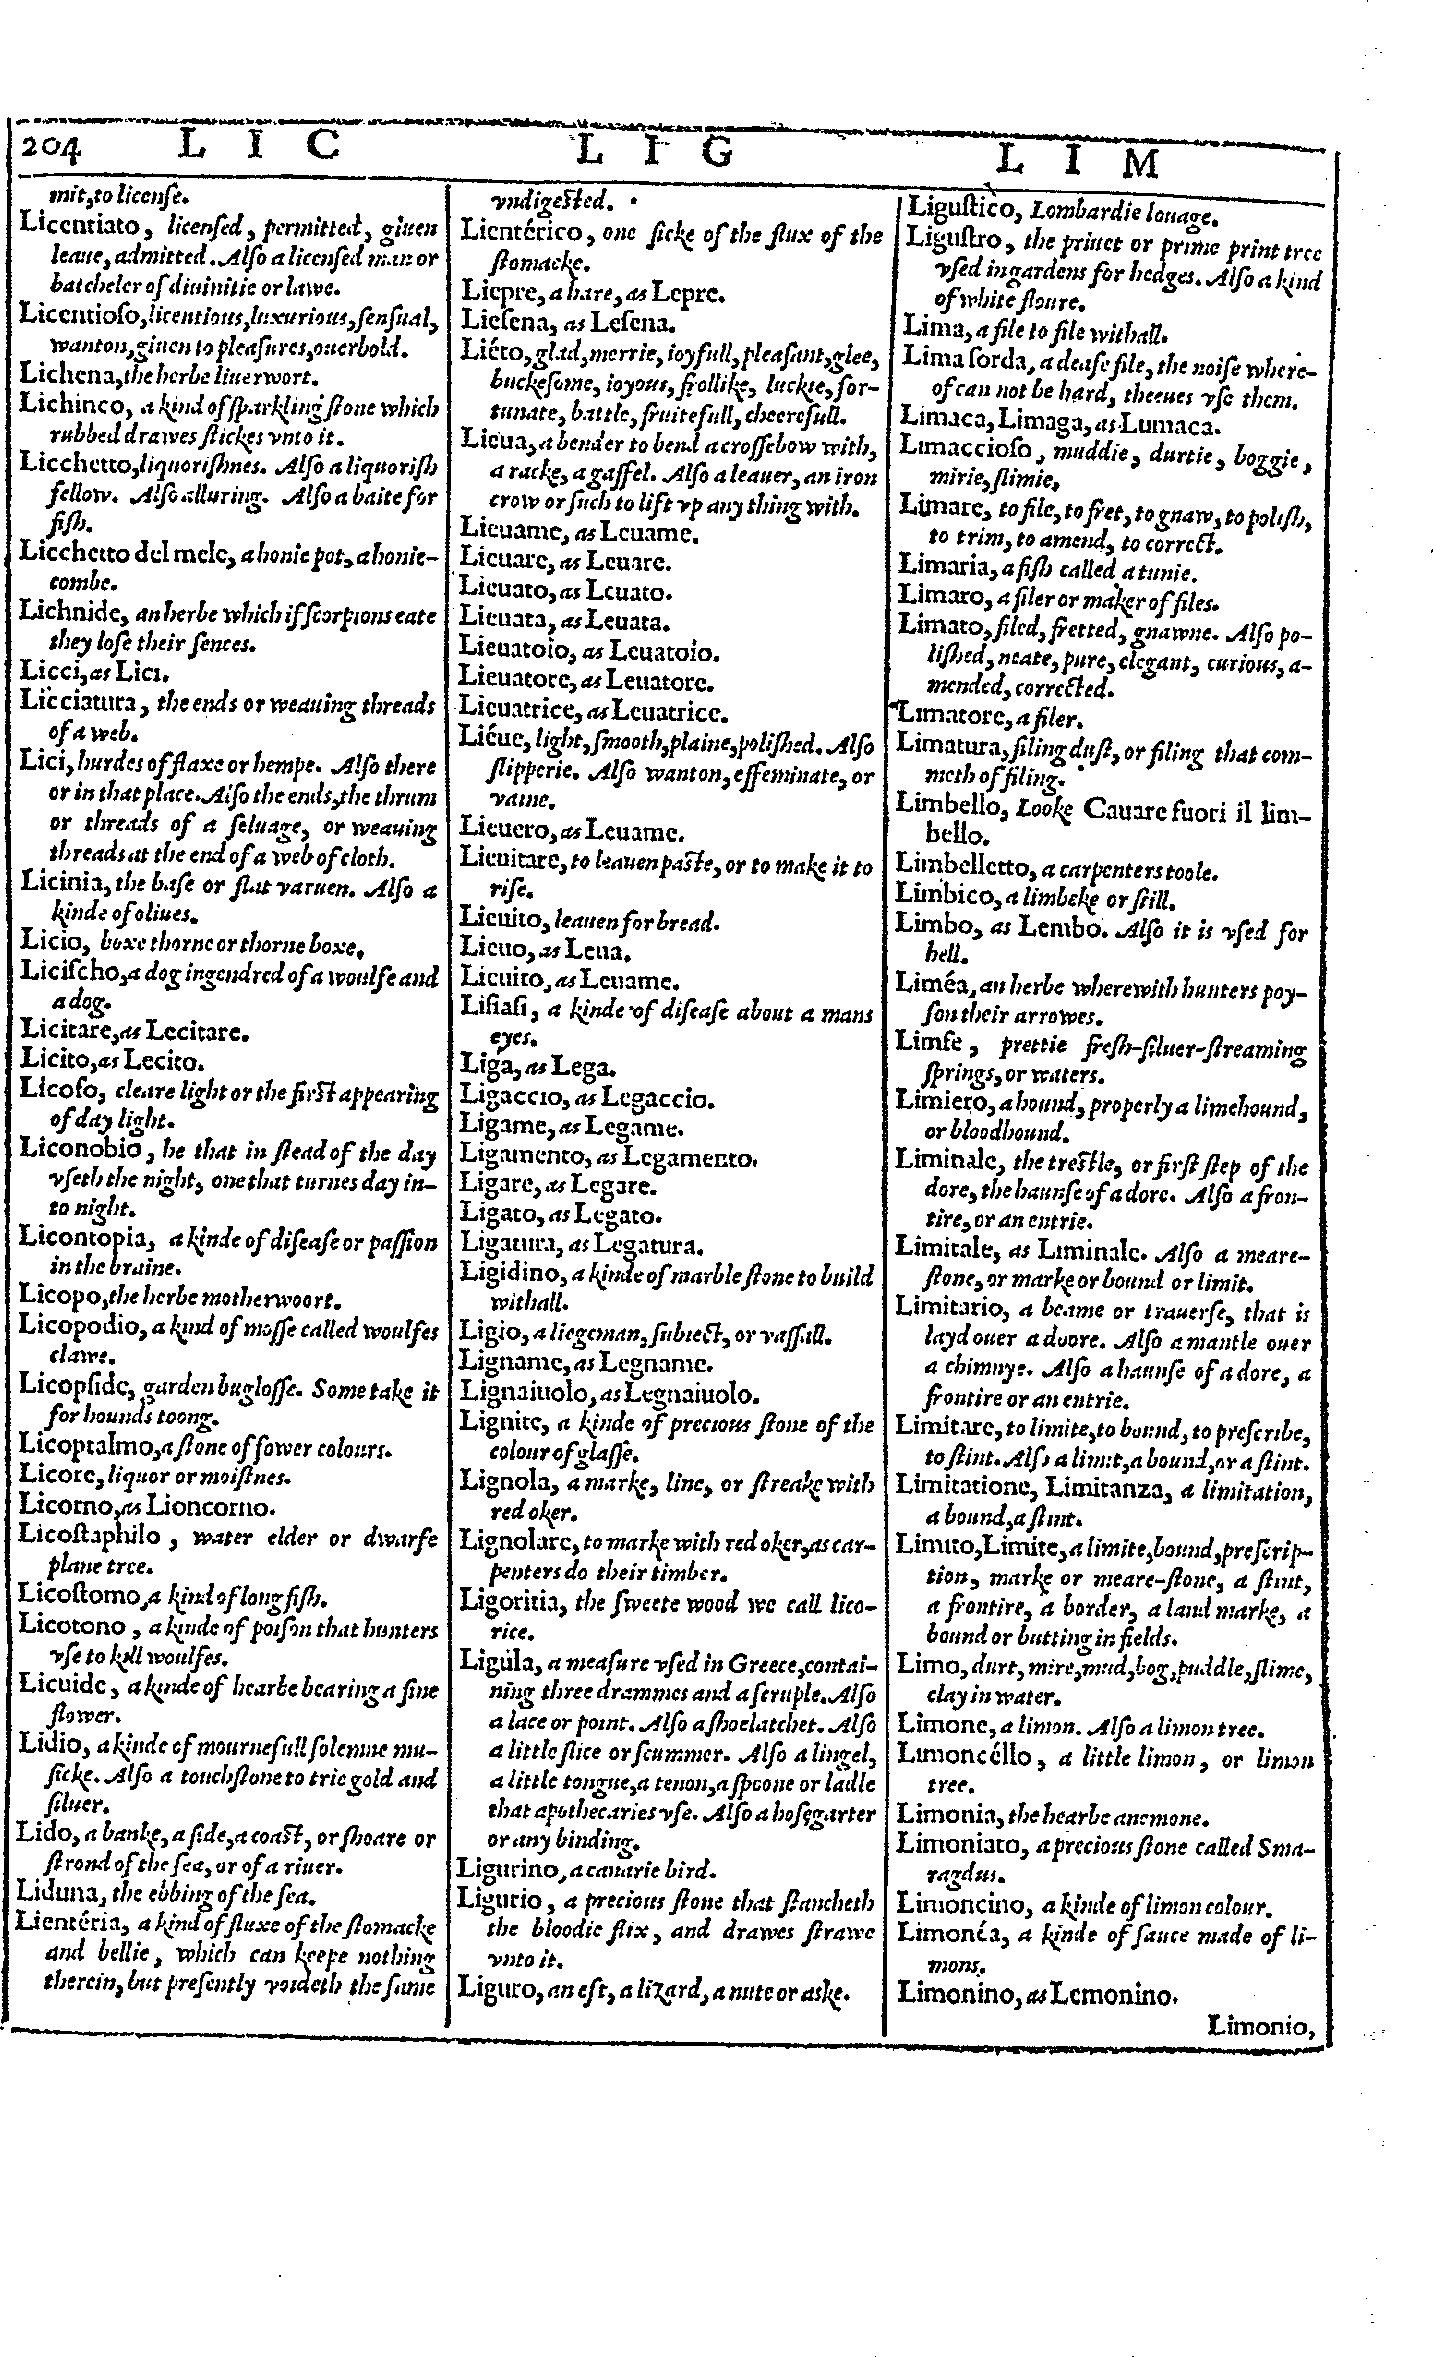 204 LIC LIG LIM
mit, to licenſe.
Licentiato, licenſed, permitted, giuen
leaue, admitted. Alſo a licenſed man or
batcheler of diuinitie or lawe.
Licentioſo, licentious, luxurious, ſenſual,
wanton, giuen to pleaſures, ouerbold.
Lichena, the herbe liuerwort.
Lichinco, a kind of ſparkling ſtone which
rubbed drawes ſtickes vnto it.
Licchetto, liquoriſhnes. Alſo a liquoriſh
fellow. Alſo alluring. Alſo a baite for
fiſh.
Licchetto del mele, a honie pot, a honie-
combe.
Lichnide, an herbe which if ſcorpions eate
they loſe their ſences.
Licci, as Lici.
Licciatura, the ends or weauing threads
of a web.
Lici, hurdes of flaxe or hempe. Alſo there
or in that place. Alſo the ends, the thrum
or threads of a ſeluage, or weauing
threads at the end of a web of cloth.
Licinia, the baſe or flat varuen. Alſo a
kinde of oliues.
Licio, boxe thorne or thorne boxe.
Liciſcho, a dog ingendred of a woulfe and
a dog.
Licitare, as Lecitare.
Licito, as Lecito.
Licoſo, cleare light or the firſt appearing
of day light.
Liconobio, he that in ſtead of the day
vſeth the night, one that turnes day in-
to night.
Licontopia, a kinde of diſeaſe or paſſion
in the braine.
Licopo, the herbe motherwoort.
Licopodio, a kind of moſſe called woulfes
clawe.
Licopſide, garden bugloſſe. Some take it
for hounds toong.
Licoptalmo, a ſtone of fower colours.
Licore, liquor or moiſtnes.
Licorno, as Lioncorno.
Licoſtaphilo, water elder or dwarfe
plane tree.
Licoſtomo, a kind of long fiſh.
Licotono, a kinde of poiſon that hunters
vſe to kill woulfes.
Licuide, a kinde of hearbe bearing a fine
flower.
Lidio, a kinde of mournefull ſolemne mu-
ſicke. Alſo a touchſtone to trie gold and
ſiluer.
Lido, a banke, a ſide, a coaſt, or ſhoare or
ſtrond of the ſea, or of a riuer.
Liduna, the ebbing of the ſea.
Lientéria, a kind of fluxe of the ſtomacke
and bellie, which can keepe nothing
therein, but preſently voideth the ſame
vndigeſted.
Lientérico, one ſicke of the flux of the
ſtomacke.
Liepre, a hare, as Lepre.
Lieſena, as Leſena.
Liéto, glad, merrie, ioyfull, pleaſant, glee,
buckeſome, ioyous, frollike, luckie, for-
tunate, battle, fruitefull, cheerefull.
Lieua, a bender to bend a croſſebow with,
a racke, a gaffel. Alſo a leauer, an iron
crow or ſuch to lift vp any thing with.
Lieuame, as Leuame.
Lieuare, as Leuare.
Lieuato, as Leuato.
Lieuata, as Leuata.
Lieuatoio, as Leuatoio.
Lieuatore, as Leuatore.
Lieuatrice, as Leuatrice.
Liéue, light, ſmooth, plaine, poliſhed. Alſo
ſlipperie. Alſo wanton, effeminate, or
vaine.
Lieuero, as Leuame.
Lieuitare, to leauen paſte, or to make it to
riſe.
Lieuito, leauen for bread.
Lieuo, as Leua.
Lieuito, as Leuame.
Liſiaſi, a kinde of diſeaſe about a mans
eyes.
Liga, as Lega.
Ligaccio, as Legaccio.
Ligame, as Legame.
Ligamento, as Legamento.
Ligare, as Legare.
Ligato, as Legato.
Ligatura, as Legatura.
Ligidino, a kinde of marble ſtone to build
withall.
Ligio, a liegeman, ſubiect, or vaſſall.
Ligname, as Legname.
Lignaiuolo, as Legnaiuolo.
Lignite, a kinde of precious ſtone of the
colour of glaſſe.
Lignola, a marke, line, or ſtreake with
red oker.
Lignolare, to marke with red oker, as car-
penters do their timber.
Ligoritia, the ſweete wood we call lico-
rice.
Ligúla, a meaſure vſed in Greece, contai-
ning three drammes and a ſcruple. Alſo
a lace or point. Alſo a ſhoelatchet. Alſo
a little ſlice or ſcummer. Alſo a lingel,
a little tongue, a tenon, a ſpoone or ladle
that apothecaries vſe. Alſo a hoſegarter
or any binding.
Ligurino, a canarie bird.
Ligurio, a precious ſtone that ſtancheth
the bloodie flix, and drawes ſtrawe
vnto it.
Liguro, an eft, a lizard, a nute or aske.
Liguſtico, Lombardie louage.
Liguſtro, the priuet or prime print tree
vſed in gardens for hedges. Alſo a kind
of white floure.
Lima, a file to file withall.
Lima ſorda, a deafe file, the noiſe where-
of can not be hard, theeues vſe them.
Limaca, Limaga, as Lumaca.
Limaccioſo, muddie, durtie, boggie,
mirie, ſlimie,
Limare, to file, to fret, to gnaw, to poliſh,
to trim, to amend, to correct.
Limaria, a fiſh called a tunie.
Limaro, a filer or maker of files.
Limato, filed, fretted, gnawne. Alſo po-
liſhed, neate, pure, elegant, curious, a-
mended, corrected.
Limatore, a filer.
Limatura, filing duſt, or filing that com-
meth of filing.
Limbello, Looke Cauare fuori il lim-
bello.
Limbelletto, a carpenters toole.
Limbico, a limbeke or ſtill.
Limbo, as Lembo. Alſo it is vſed for
hell.
Liméa, an herbe wherewith hunters poy-
ſon their arrowes.
Limfe, prettie freſh-ſiluer-ſtreaming
ſprings, or waters.
Limiero, a hound, properly a limehound,
or bloodhound.
Liminale, the treſtle, or firſt ſtep of the
dore, the haunſe of a dore. Alſo a fron-
tire, or an entrie.
Limitale, as Liminale. Alſo a meare-
ſtone, or marke or bound or limit.
Limitario, a beame or trauerſe, that is
layd ouer a doore. Alſo a mantle ouer
a chimnye. Alſo a haunſe of a dore, a
frontire or an entrie.
Limitare, to limite, to bound, to preſcribe,
to ſtint. Alſo a limit, a bound, or a ſtint.
Limitatione, Limitanza, a limitation,
a bound, a ſtint.
Limito, Limite, a limite, bound, preſcrip-
tion, marke or meare-ſtone, a ſtint,
a frontire, a border, a land marke, a
bound or butting in fields.
Limo, durt, mire, mud, bog, puddle, ſlime,
clay in water.
Limone, a limon. Alſo a limon tree.
Limoncéllo, a little limon, or limon
tree.
Limonia, the hearbe anemone.
Limoniato, a precious ſtone called Sma-
ragdus.
Limoncino, a kinde of limon colour.
Limonéa, a kinde of ſauce made of li-
mons.
Limonino, as Lemonino.
Limonio,